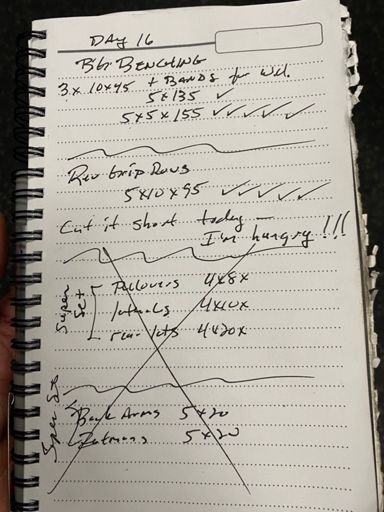 DAY 16
Big BENCHING
3 x 10 x 45 + BANDS for wu.
5 x 135 ✓
5 x 5 x 155 ✓ ✓ ✓ ✓ ✓
Rev Grip Rows
5 x 10 x 95 ✓ ✓ ✓ ✓ ✓
Cut it short today —
I'm hungry!!!
Super Set
Pullovers 4x8x
laterals 4x10x
rear lats 4x20x
Super Set
Back Arms 5x20
5x20